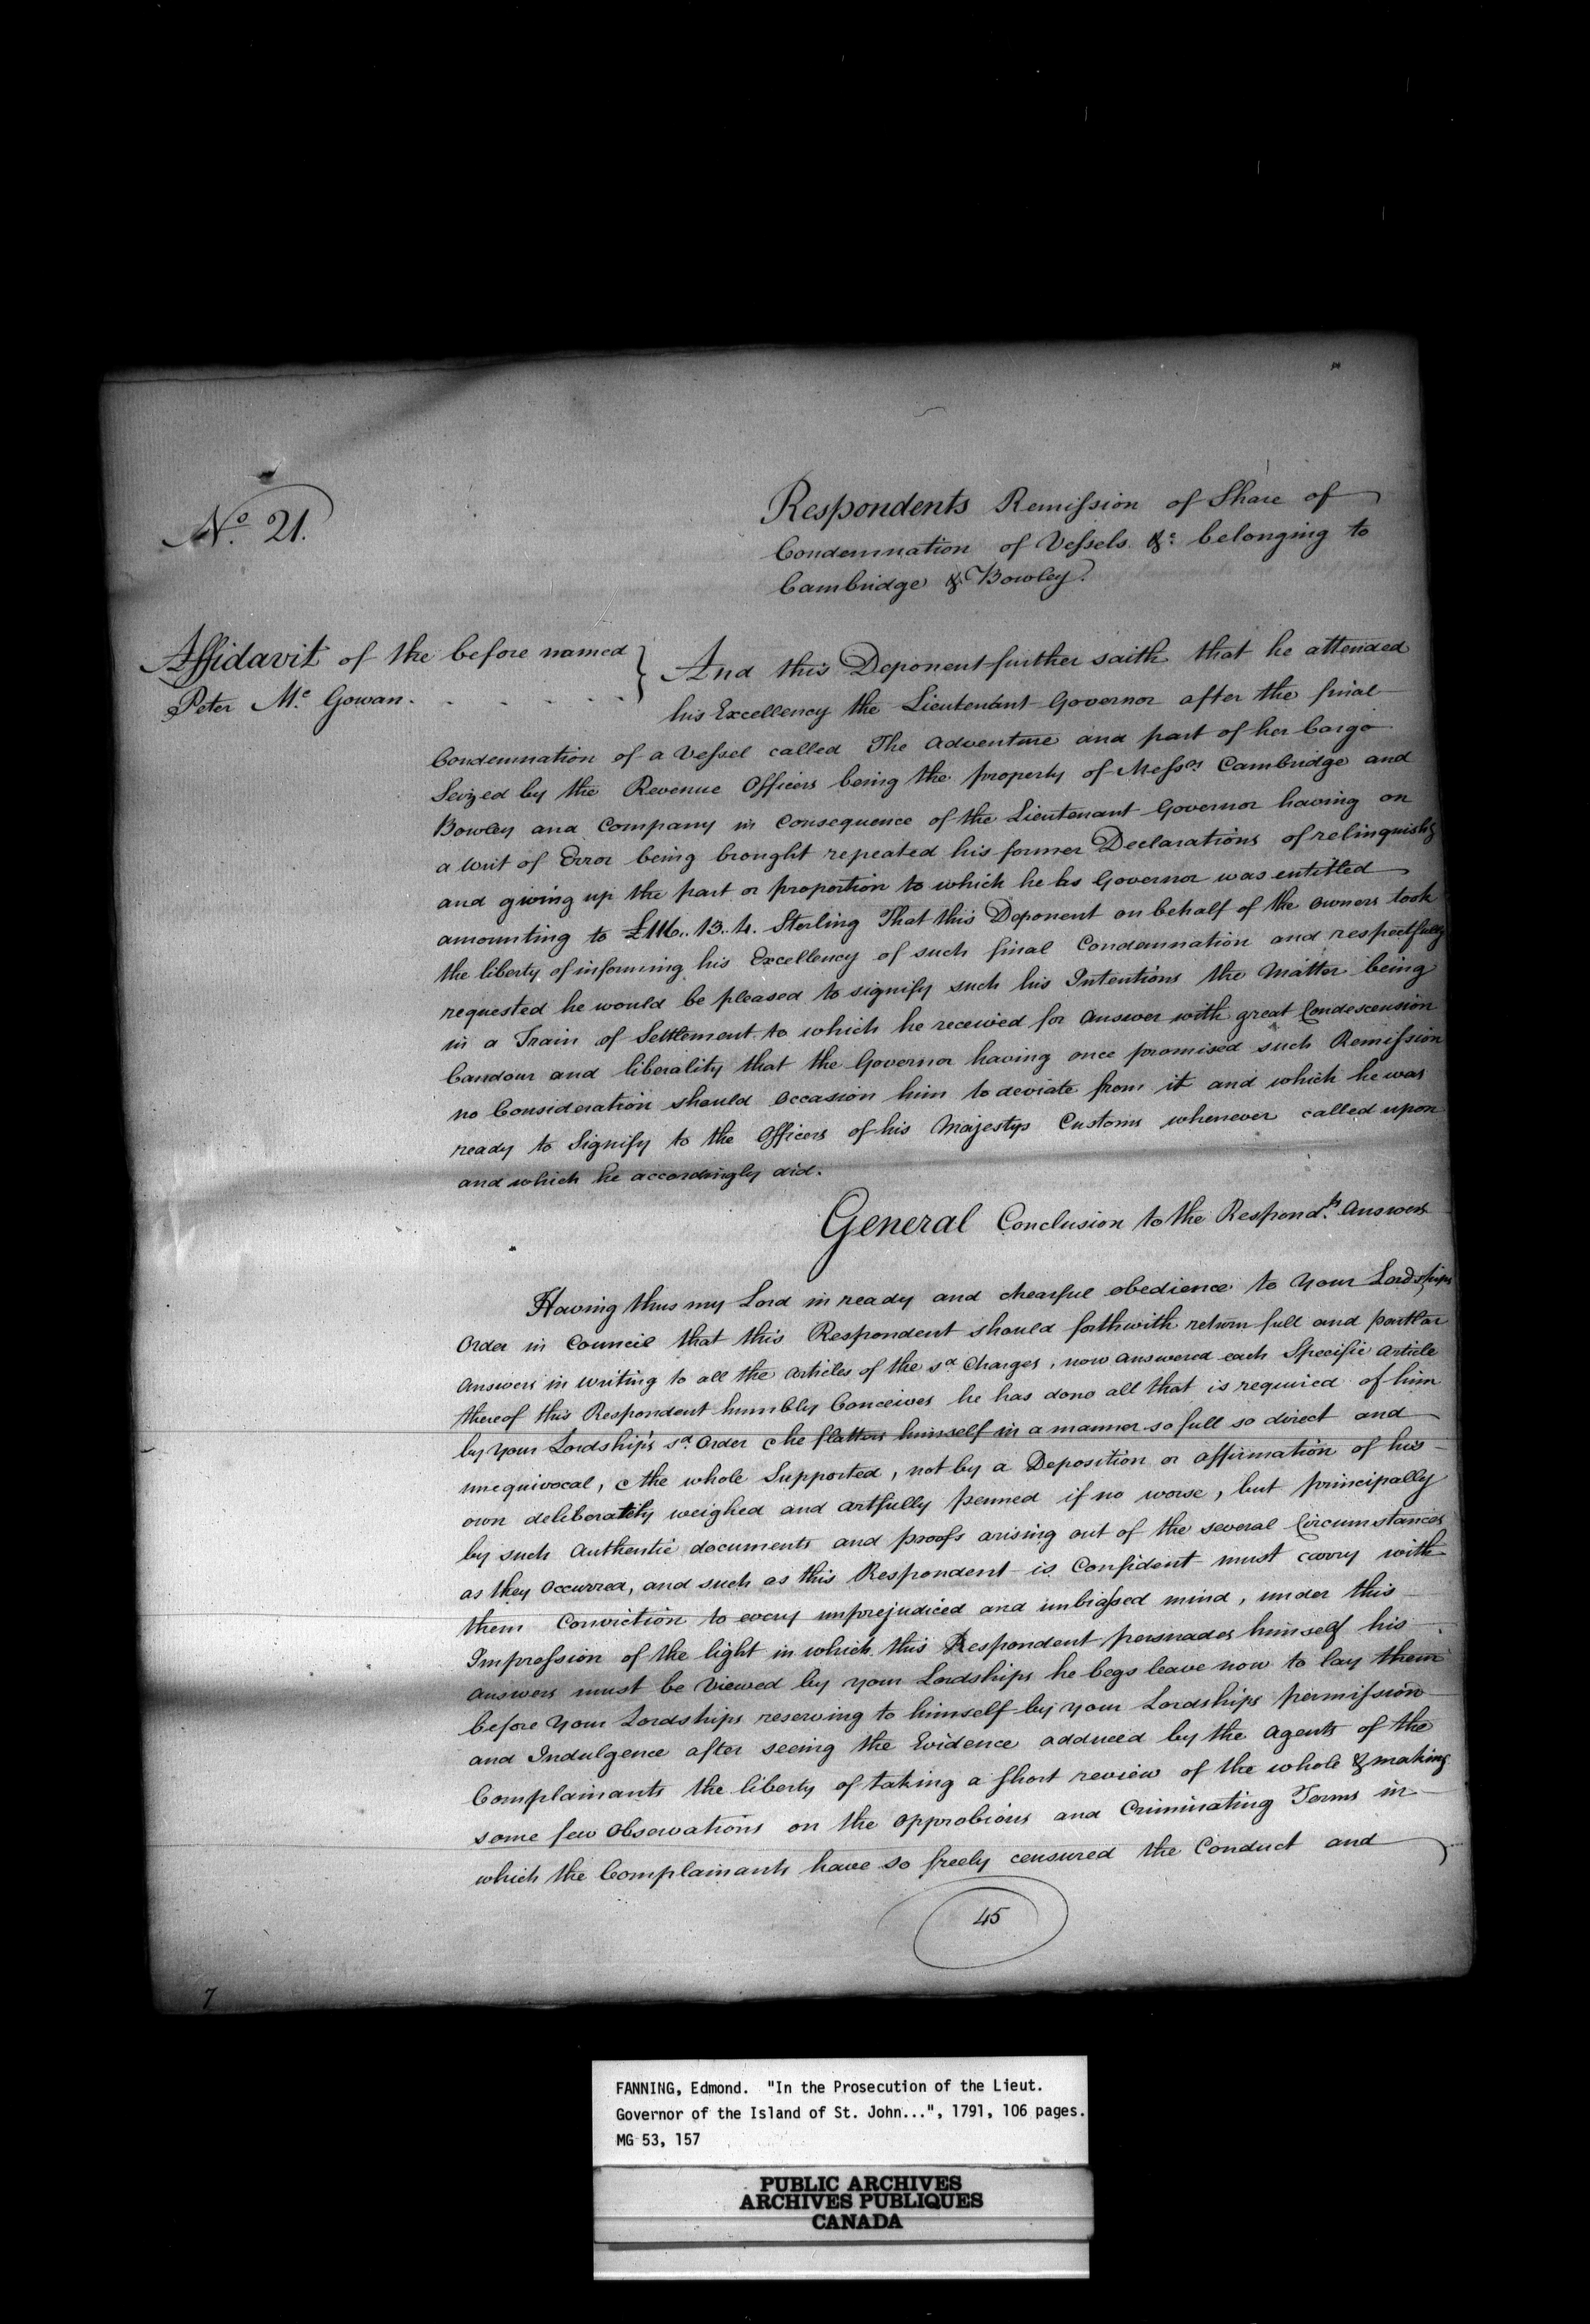 No. 21.
Respondents Remission of Share of
Condemnation of Vessels &c belonging to
Cambridge & Bowley.
Affidavit of the before named
Peter Mc Gowan.
And this Deponent further saith that he attended
his Excellency the Lieutenant Governor after the final
Condemnation of a Vessel called The Adventure and part of her Cargo
Seized by the Revenue Officers being the property of Messrs Cambridge and
Bowley and Company in Consequence of the Lieutenant Governor having on
a writ of Error being brought repeated his former Declarations of relinquishg
and giving up the part or proportion to which he as Governor was entitled
amounting to £116.. 13.. 4. Sterling That this Deponent on behalf of the owners took
the liberty of informing his Excellency of such final Condemnation and respectfully
requested he would be pleased to signify such his Intentions the Matter being
in a Train of Settlement to which he received for Answer with great Condescension
Candour and liberality that the Governor having once promised such Remission
no Consideration should Occasion him to deviate from it and which he was
ready to Signify to the Officers of his Majestys Customs whenever called upon
and which he accordingly did.
General Conclusion to the Respondts Answers
Having thus my Lord in ready and chearful obedience to Your Lordships
Order in Council that this Respondent should forthwith return full and partlar
Answers in writing to all the Articles of the sd Charges, now answered each Specific Article
thereof this Respondent humbly Conceives he has done all that is required of him
by Your Lordships sd Order & he flatters himself in a manner so full so direct and
unequivocal, & the whole Supported, not by a Deposition or affirmation of his
own deliberately weighed and artfully penned if no worse, but principally
by such Authentic documents and proofs arising out of the several Circumstances
as they Occurred, and such as this Respondent is Confident must carry with
them Conviction to every unprejudiced and unbiassed mind, under this
Impression of the light in which this Respondent persuades himself his
answers must be Viewed by your Lordships he begs leave now to lay them
before Your Lordships reserving to himself by your Lordships permission
and Indulgence after seeing the Evidence adduced by the Agents of the
Complainants the liberty of taking a short review of the whole & making
some few Observations on the opprobious and Criminating Terms in
which the Complainants have so freely censured the Conduct and
45
7
FANNING, Edmond. "In the Prosecution of the Lieut.
Governor of the Island of St. John...", 1791, 106 pages.
MG 53, 157
PUBLIC ARCHIVES
ARCHIVES PUBLIQUES
CANADA